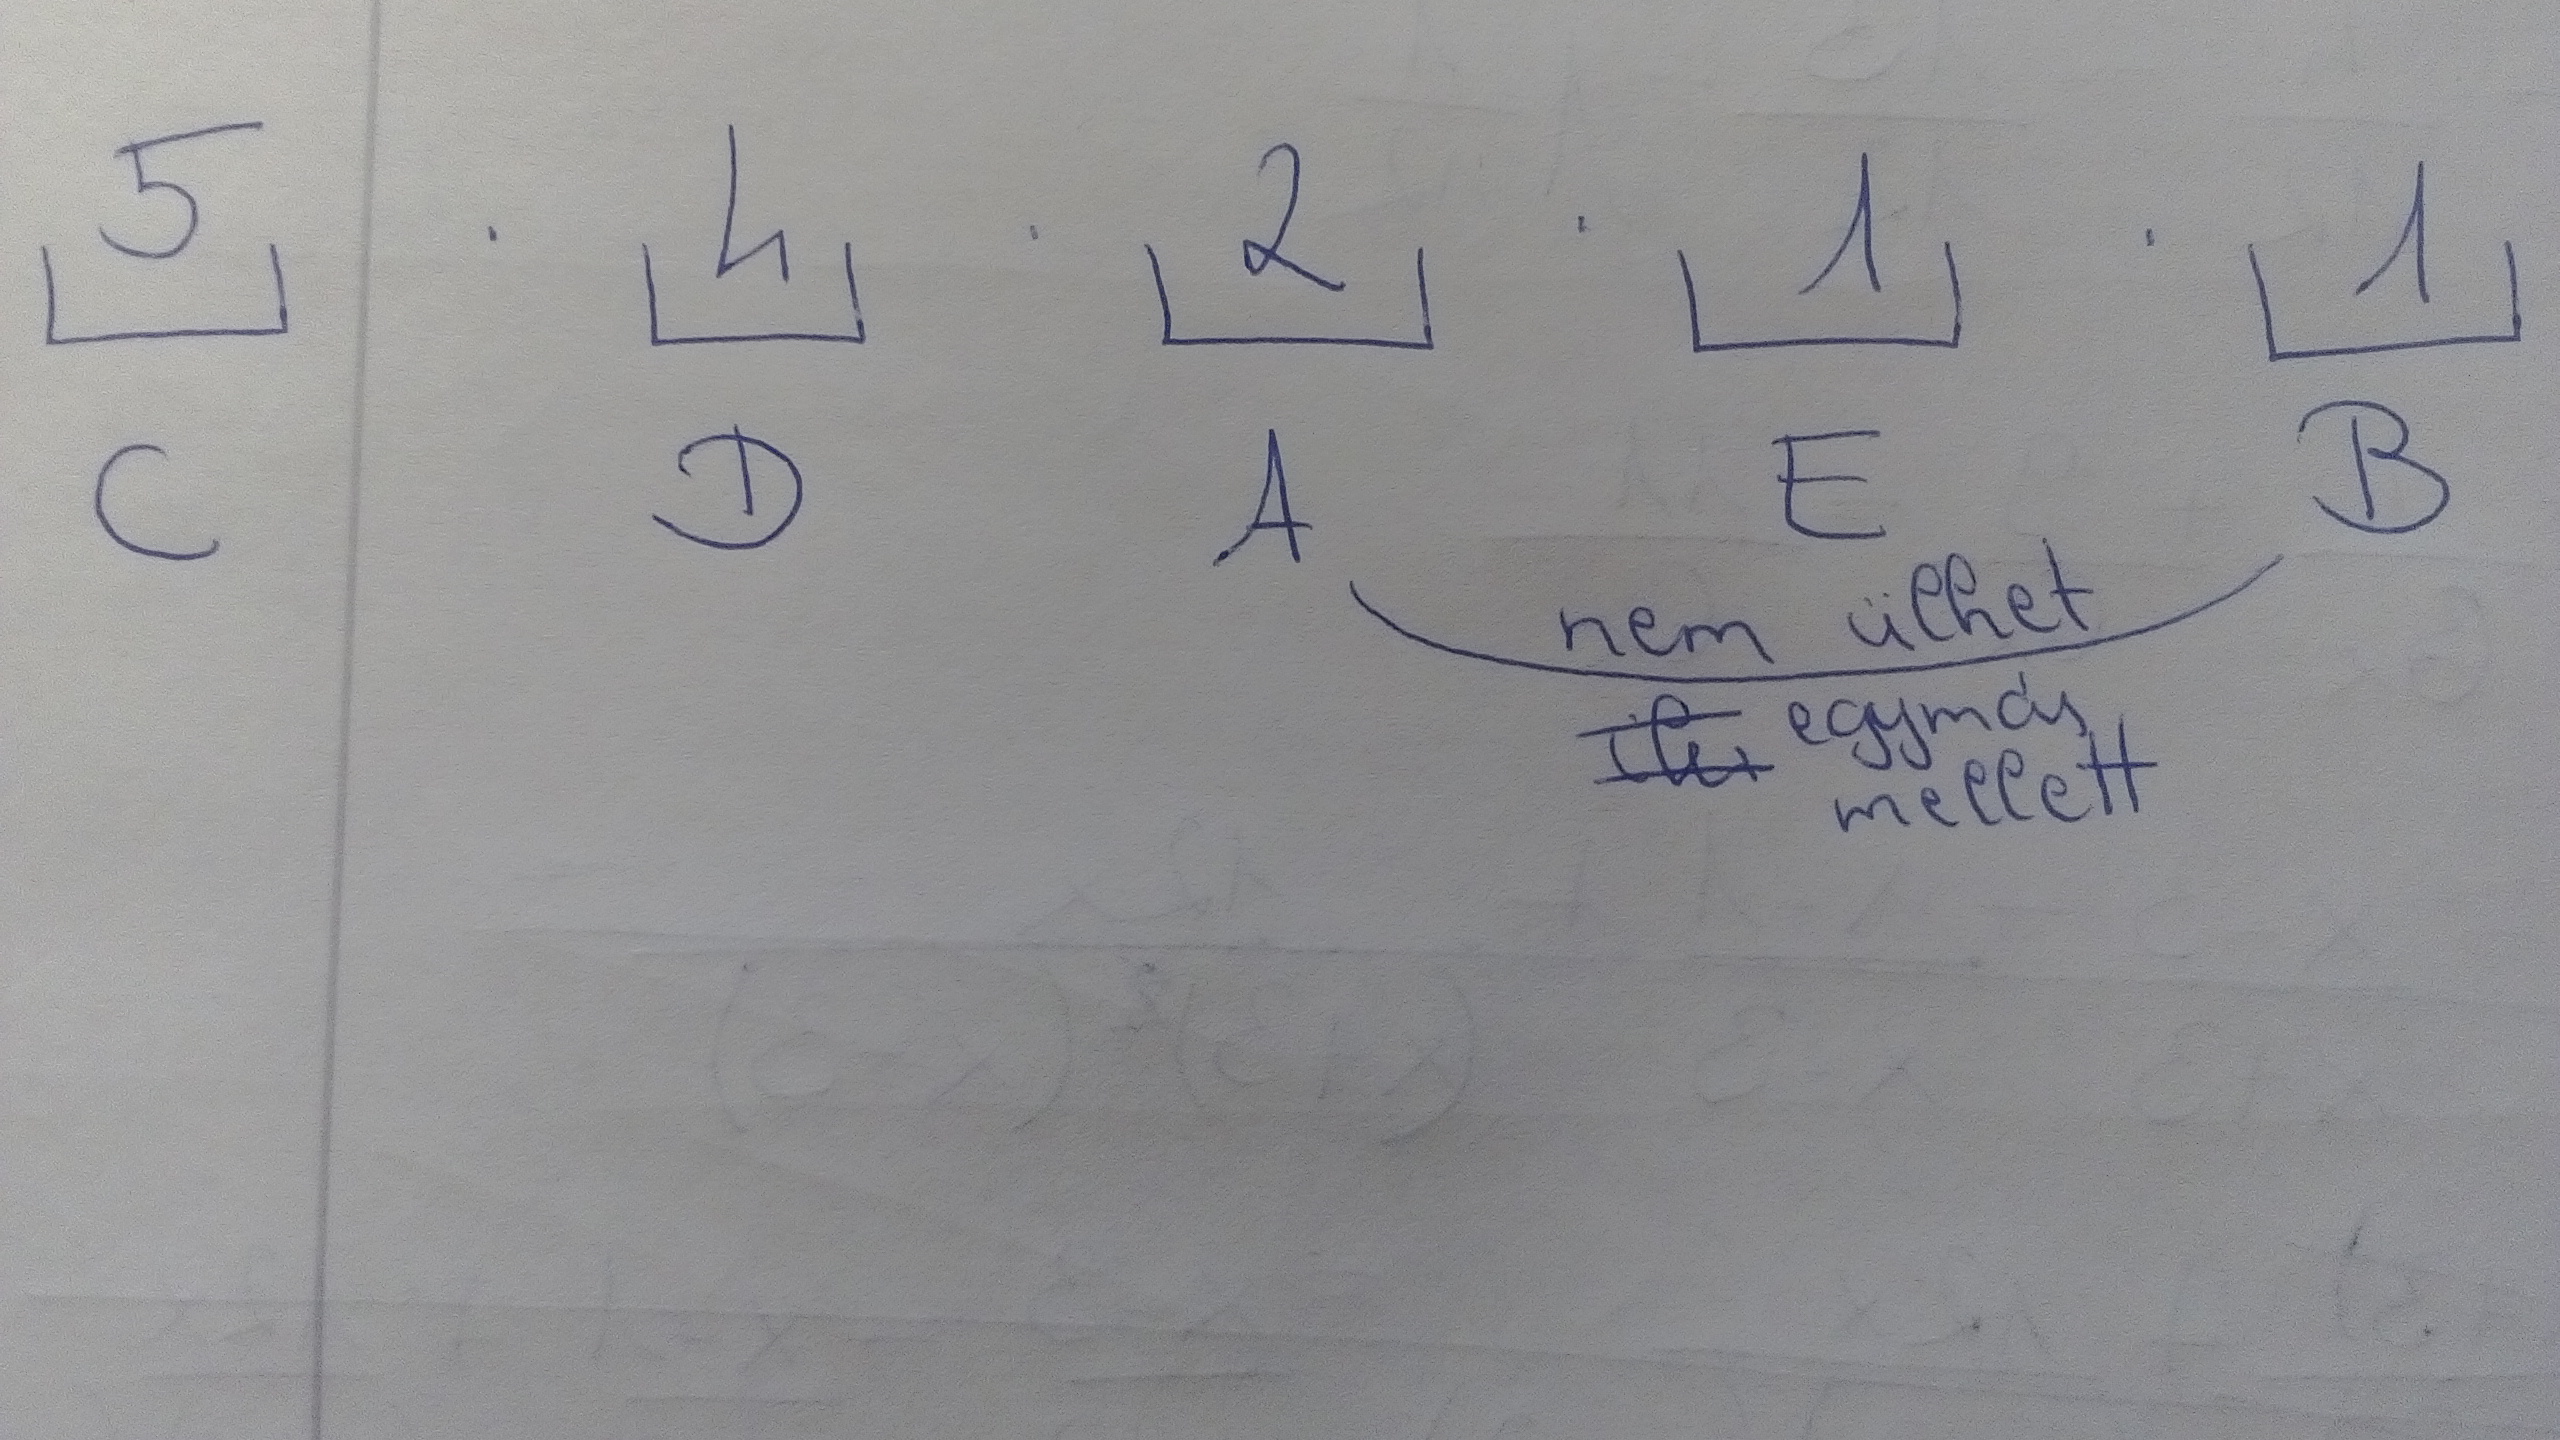 5 · 4 · 2 · 1 · 1
C D A E B
nem ülhet
egymás
mellett